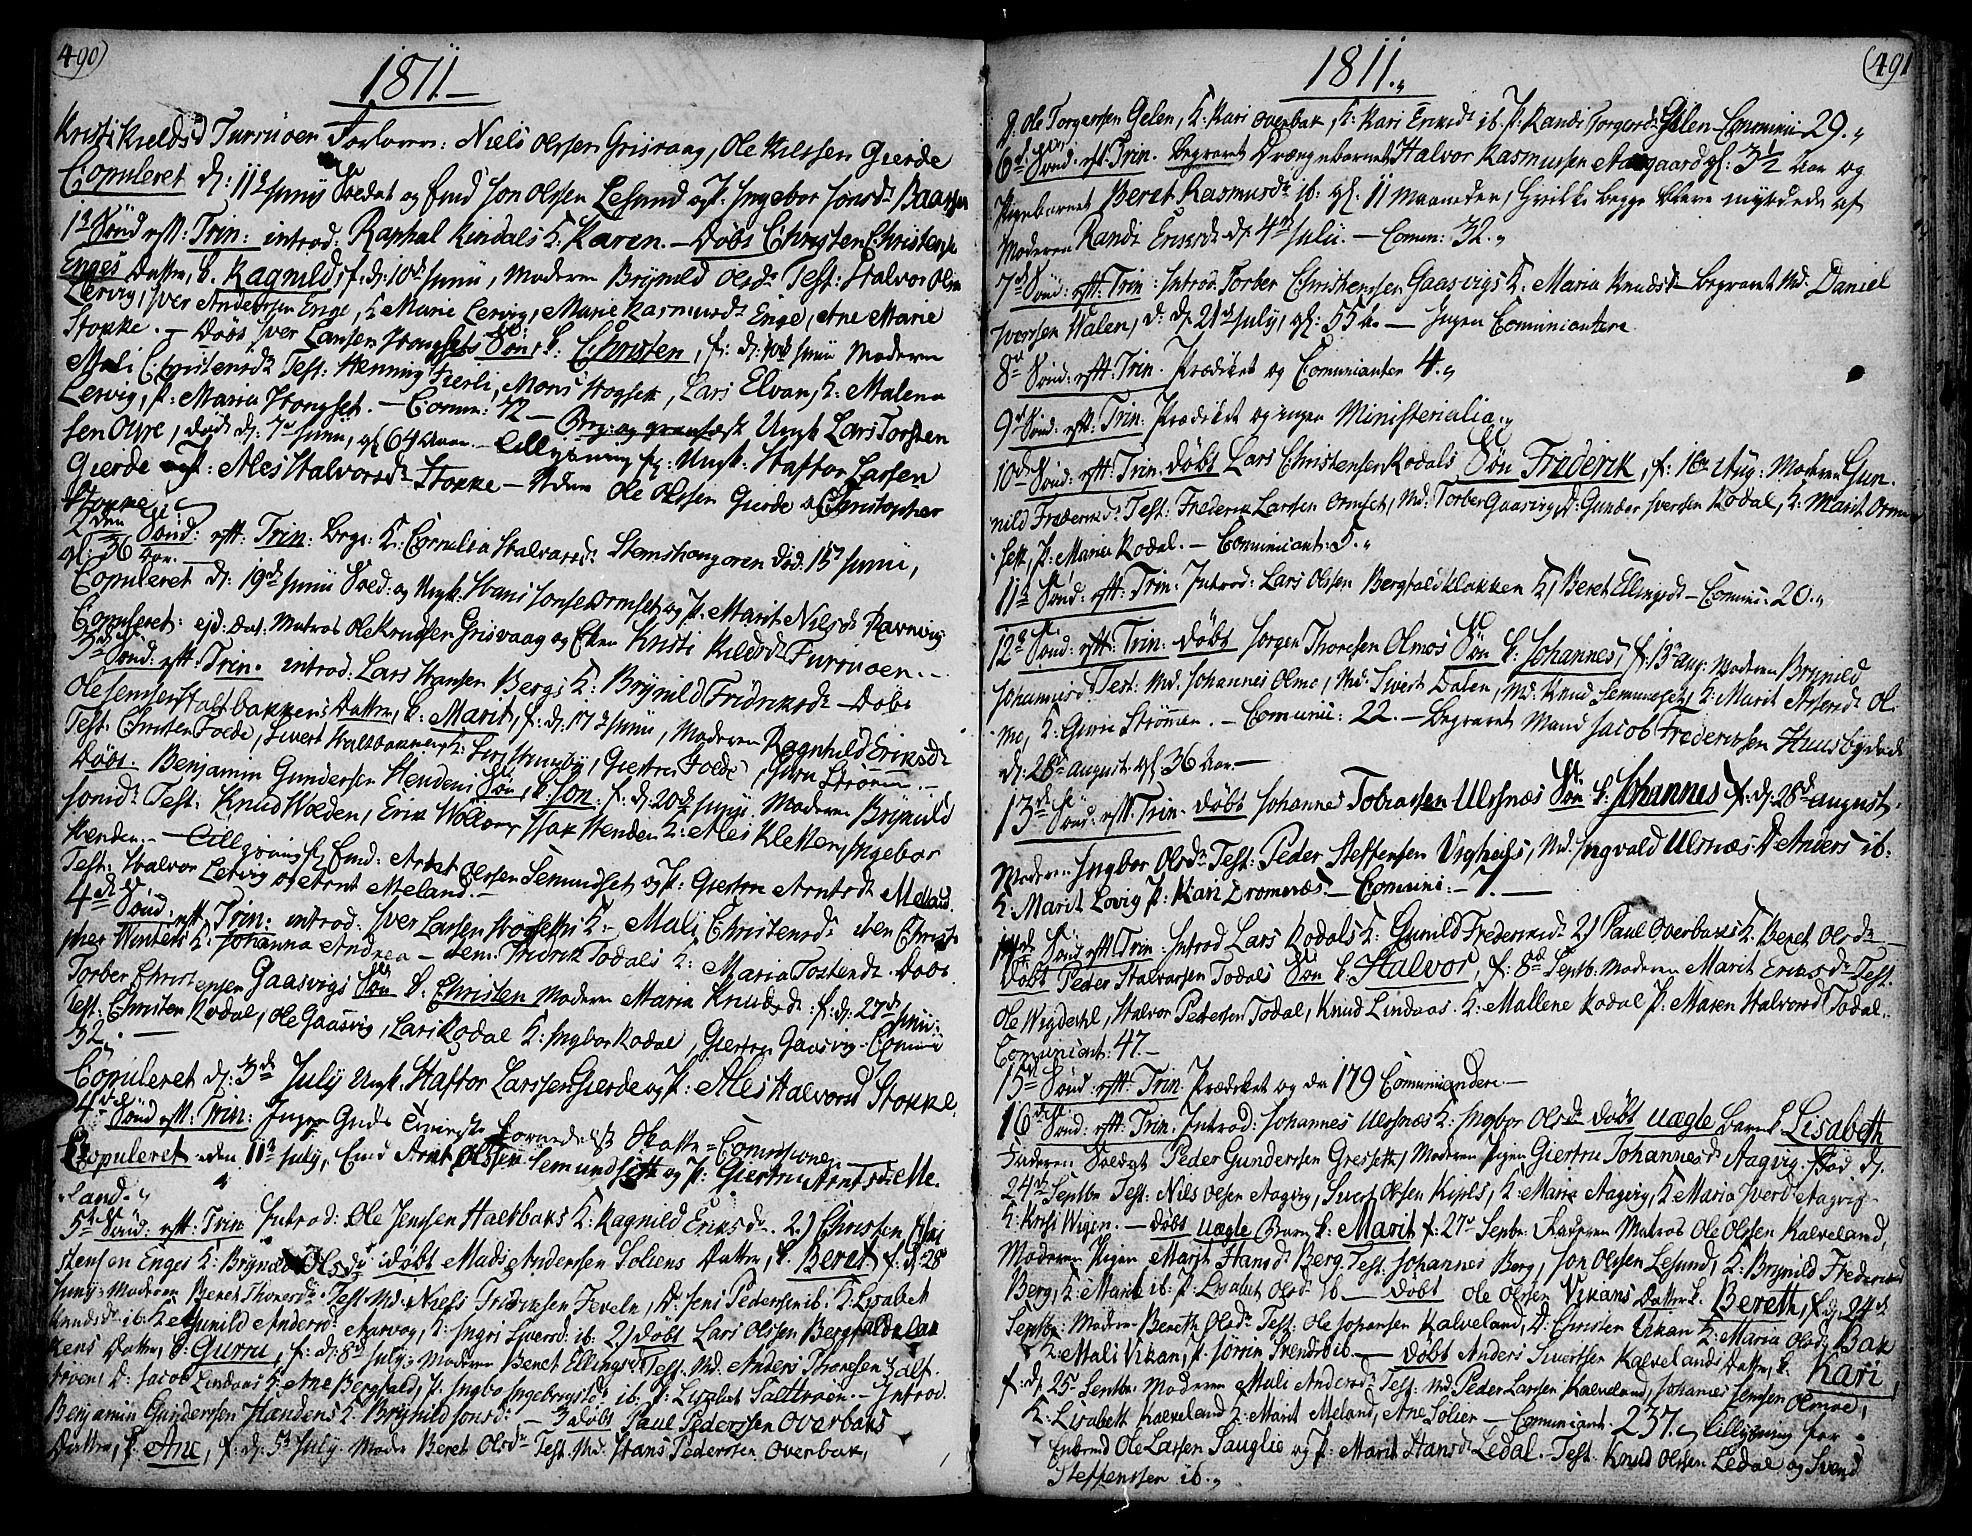 490)
1811.
Kristi Kieldsd Furruoen Forlovere: Niels Olssen Grisvaag, Ole Kilssen Gierde
Copuleret d: 11te Junii Soldat og Enk Jon Olssen Lesund og P: Ingebor Jonsd: Baassen
1te Sønd eft: Trin: introd: Raphal Rindals K: Karen. – Døbt Christen Christens:
Enges Datter, k. Ragnild, f: d: 10de Junii, Moderen Brynild Olsd: Test: Halvor Olsen
Lervig, Iver Andersen Enge, K Marie Lervig, Marie Rasmusd: Enge, Ane Marie
Stokke. – Døbt Iver Larssen Hongsets Søn, k: Christen, f: d: 10de Junii Moderen
Mali Christensd: Test: Henning Lierli, Mons Hogset, Lars Elvan, K: Malena
Lervig, P: Maria Hongset. – Comm: 72 – Ungk Lars Torsten
sen Oyre, død d: 7de Junii, gl 64 Aar. – Lillysning for: Ungk: Haftor Larsen
Gierde og P: Ales Halvorsd: Stokke – Ole Olssen Gierde og Christopher
Stokke
2den Sønd: eft: Trin: Begr: K: Cornelia Halvorsd: Stemshaugoren død: 15de Junii,
gl: 36 Aar. –
Copuleret d: 19de Junii Sold: og Ungk: Hans Jonsen Ormset og P: Marit Nilsd: Ravnvig
Copuleret: ejd: Dat: Matros Ole Knudsen Grisvaag og Enken Kristi Kildsd: Furruoen.
3de Sønd: eft: Trin. introd: Lars Hansen Bergs K: Brynild Fridriksd: – Døbt
Ole Jensen Haltbakkens Datter, k: Marit, f: d: 17de Junii, Moderen Ragnhild Eriksd:
Test: Christen Foede, Sivert Haltbakken, K: Giertru Foede,
Døbt. Benjamin Gundersen Hendens Søn, k: Jon. f: d: 20de Junii. Moderen Brynild
Jonsd: Test: Knud Wolden, Erik Isak Henden K: Ales Kletten, Ingebor
Henden. – Lillysning f: Enk: Arnt Olssen Semundset og P: Giertru Arntsd: Meland.
Test: Halvor Lervig og Arnt Meland. –
4de Sønd: eft. Trin: introd: Iver Larsen Hogsets K: Mali Christensd: den Christo
pher Winters K: Johanna Andrea – Fridrik Todals K: Maria Tostend: Døbt
Torber Christensen Gaasvigs Søn k. Christen Moderen Maria Knudsd: f: d: 27de Junii:
Test: Christen Rodal, Ole Gaasvig, Lars Rodal K: Ingbor Rodal, Giertru Gaasvig. Comm
32. –
Copuleret d: 3de July Ungk. Haftor Larssen Gierde og P: Ales Halvorsd Stokke.
4de Sønd eft. Trin: Ingen Guds Tieneste formedelst Skatte = Comissionen
Copuleret den 11te July, Enk Arnt Olssen Semundseth og P: Giertru Arntsd: Me-
land.
5te Sønd: eft: Trin Introd: Ole Jenssen Haltbaks K: Ragnild Eriksd. 2) Christen Chri
stensen Enges K: Brynild Olsd: døbt Mads Andersen Soliens Datter, k. Beret f: d: 28
Juny: Moderen Beret Thoresd: Test Md: Niels Fridriksen Feveln, D: Jens Pedersen ib. K: Lisabet
Knudsd: ib: K: Gunild Andersd: Aarvog, K: Ingri Iversd: ib: 2) døbt Lars Olssen Bergfaldklak
kens Datter, k: Gurru, f: d: 8de July: Moderen Beret Ellingsd: Test: Md: Anders Thoresen Half-
D: Jacob Lindaas K: Ane Bergfald, P: Ingbo Ingebrigtsd: ib. P: Lisabet Salttrøen. – Introd.
Benjamin Gundersen Hændens K: Brynild Jonsd: – 3 døbt Paul Pederssen Overbaks
Datter, k: Ane, f: d: 5te July: Modr Beret Olsd: Test: Md: Hans Pederssen Overbak,
(491
1811.
D. Ole Torgerssen Gelen, K: Kari Overbak, K: Kari Eriksd: ib. P: Randi Torgersd: Gelen – Communi 29.
6te Sønd: eft: Trin. begravet Drængebarnet Halvor Rasmussen Aasgaard gl: 3½ Aar og
Pigebarnet Beret Rasmusd: ib: gl. 11 Maaneder, hvilke begge bleve myrdede af
Moderen Randi Eriksd: d: 4de Julii. – Comm: 32.
7de Sønd: eft: Trin: Introd: Torber Christenssen Gaasvigs K: Maria Knudsd: – begravet Md: Daniel
Iverssen Walen, d: d: 21de July, gl: 55 A. – Ingen Comunicantere
8de Sønd: eft: Trin. Prædiket og Comunianter 4.
9de Sønd: eft: Trin: Prædiket og ingen Ministerialia.
10de Sønd: eft: Trin: døbt Lars Christensen Rodals Søn Frederik, f: 16de Aug: Modren Gun.
nild Frederiksd: Test: Frederik Larsen Ormset, Md: Torber Gaasvig, D: Gunder Iverssen Rodal, K: Marit Orm
sett, P: Maria Rodal. – Comunicant: 5.
11te Sønd: eft: Trin: Introd: Lars Olssen Bergfaldklakken K: Beret Ellingsd: – Comuni: 20.
12te Sønd: eft: Trin: døbt Jorgen Thoresen Olmos Søn k: Johannes, f: 13de Aug: Moderen Brynild
Johannesd: Test: Md: Johannes Olmo, Md: Sivert Dalen, Md: Knud Semundset, K: Marit Ol-
mo, K: Guru Strømmen. – Comunic: 22. – begravet Mand Jacob Frederikssen Huusby, døde
d: 28de August gl 36 Aar. –
13de Sønd: eft: Trin. døbt Johannes Tobiassen Ulssnæs Søn k: Johannes f: d: 28de August,
Moderen Ingbor Olsd: Test: Peder Steffensen Vigheils, Md: Ingvald Ulsnæs D: Anders ib:
K: Marit Lovig P: Kari Dromnæs – Comuni: – 7. –
14de Sønd eft: Trin: Introd Lars Rodals K: Gunild Frederiksd: 2) Paul Overbaks K: Beret Olsd: –
Døbt Peder Halvorsen Todals Søn k: Halvor, f: 8de Septb: Moderen Marit Eriksd: Test.
Ole Wigdehl, Halvor Pettersen Todal, Knud Lindaas. K: Mallene Rodal P: Maren Halvorsd: Todal.
Comunicant: 47. –
15de Sønd: eft: Trin: Prædiket og da 179 Comunicandere. –
16de Sønd: eft: Trin: Introd: Johannes Ulssnæs K: Ingbor Olsd: døbt uægte Barn k Lisabeth
Faderen Soldat Peder Gunderssen Gresseth, Moderen Pigen Giertru Johannesd: Aagvig. fød d:
24de Septbr Test: Nils Olsen Aagvig, Sivert Olssen Kijels, K: Marie Aagvig, K: Maria Iversd Aagvig
K: Kristi Wigen. – døbt uægte Barn k: Marit f: 27de Septbr Faderen Matros Ole Olssen Kalveland,
Moderen Pigen Marit Hansd: Berg. Test: Johannes Berg, Jon Olssen Lesund, K: Brynild Frederiksd
Berg, K: Marit ib: P: Lisabet Olsd: ib – Døbt Ole Olsen Vikans Datter k: Bereth, f: d: 24de
Septbr Moder Bereth Olsd: Test: Ole Johansen Kalveland, D: Christen Vikan K: Maria Olsd: Bak
K: Mali Vikan, P: Jorrin Trendsd: ib. – Døbt Anders Siwertsen Kalvelands Datter, k: Kari
f: d: 25de Septbr Moderen Mali Andersd: Test: Md: Peder Larssen Kalveland, Johannes Jenssen Olmoe,
K: Lisabeth Kalveland K: Marit Meland, Ane Solien – Comunicant. 237. Lillysning for
Enkmd Ole Larssen Sauglie og P: Marit Hansd: Ledal – Test: Knud Olssen Ledal og Svend
Steffenssen ib.